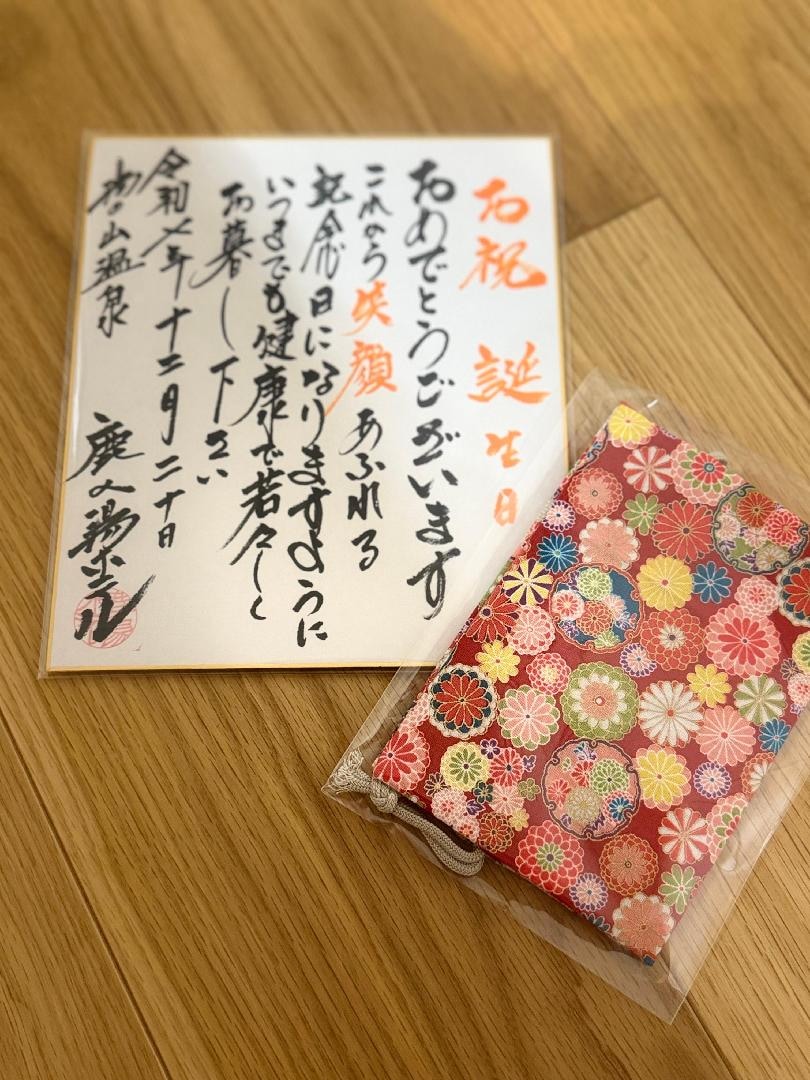 お祝 誕生日
おめでとうございます
これから笑顔あふれる
記念日になりますように
いつまでも健康で若々しく
お暮し下さい
令和七年十二月二十日
湯の山温泉 鹿の湯ホテル